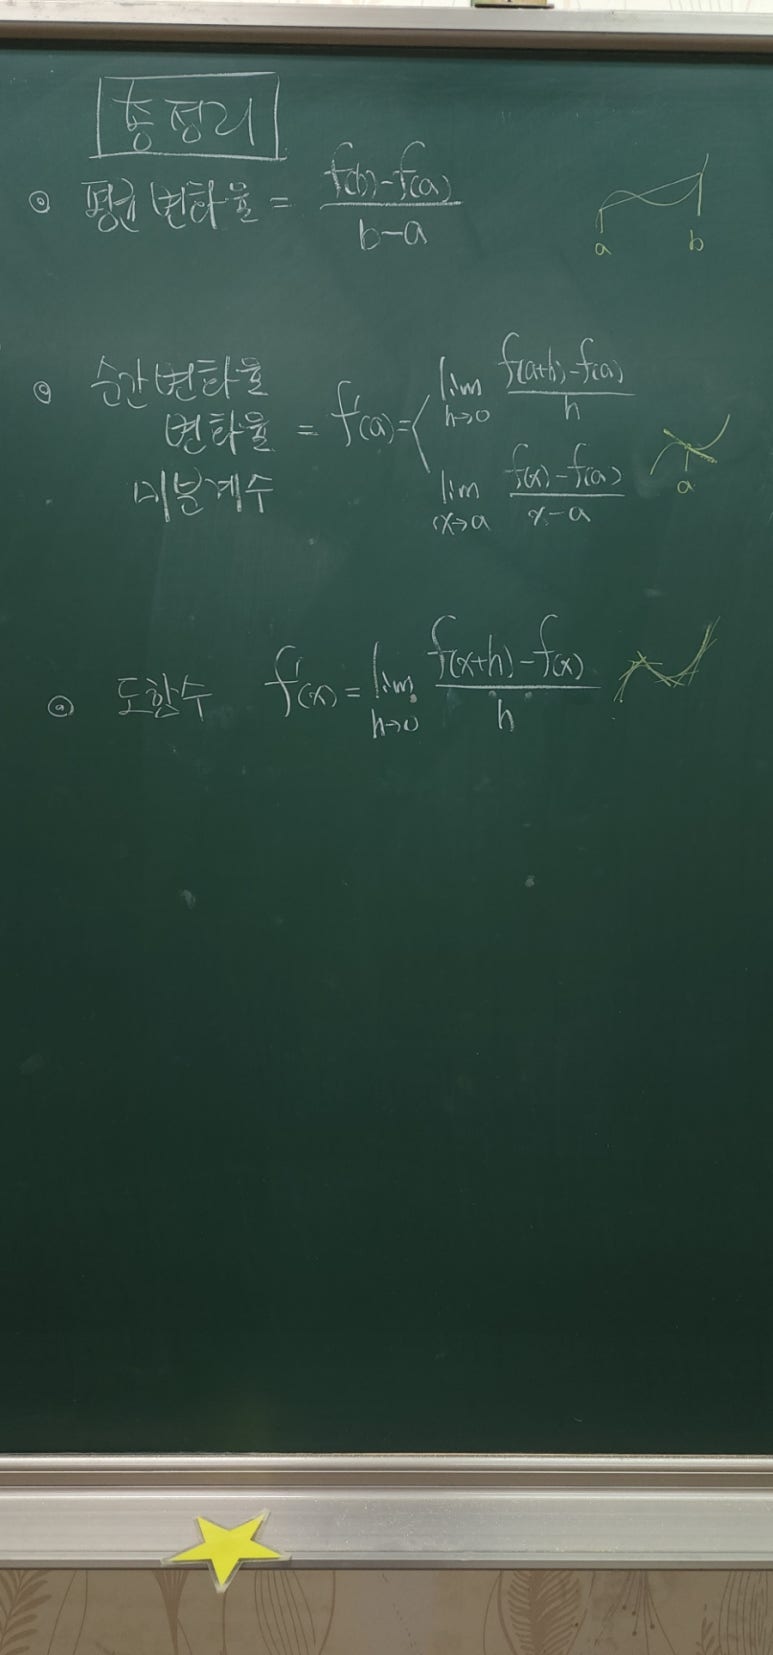 총정리
◎ 평균변화율 = f(b)-f(a) / b-a
a b
◎ 순간변화율
변화율 = f'(a) = lim h→0 f(a+h)-f(a) / h
미분계수 lim x→a f(x)-f(a) / x-a
a
◎ 도함수 f'(x) = lim h→0 f(x+h)-f(x) / h